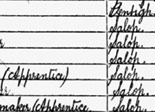 Denbigh.
Salop.
Salop.
r Salop.
Salop.
(Apprentice) Salop.
r Salop.
maker (Apprentice Salop.